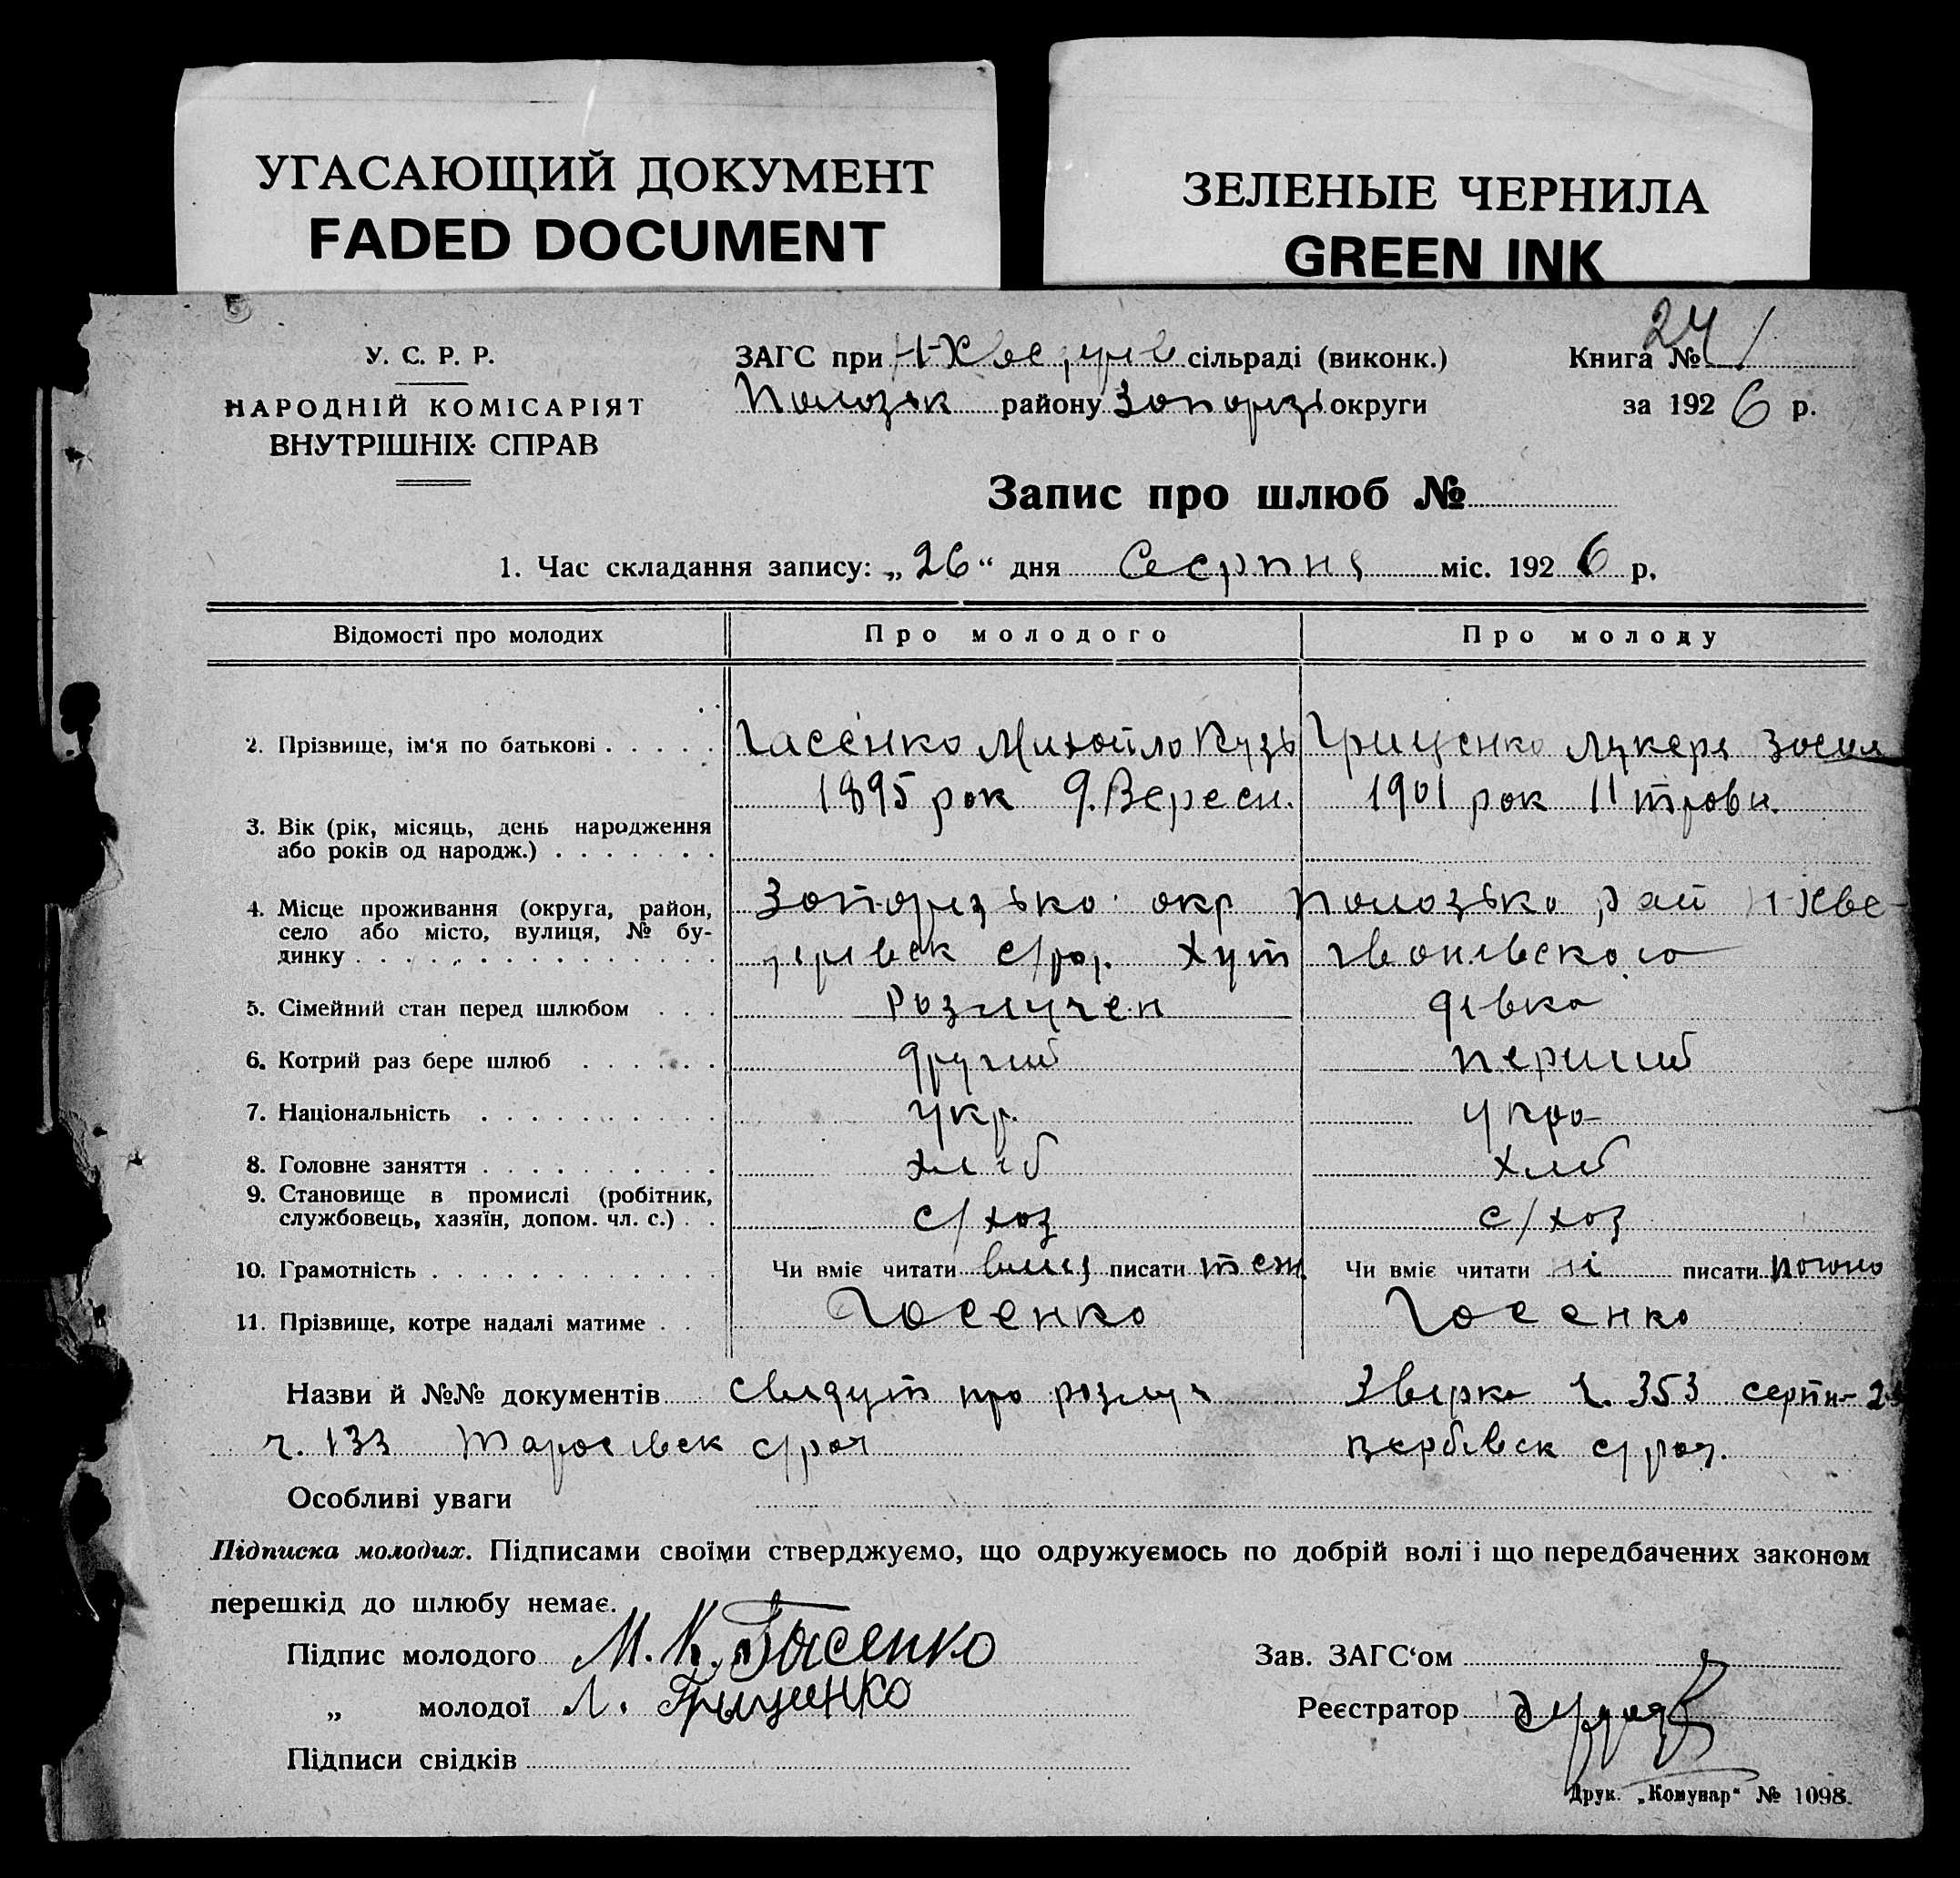 УГАСАЮЩИЙ ДОКУМЕНТ
FADED DOCUMENT
ЗЕЛЕНЫЕ ЧЕРНИЛА
GREEN INK
У. С. Р. Р.
НАРОДНІЙ КОМІСАРІЯТ
ВНУТРІШНІХ СПРАВ
ЗАГС при сільраді (виконк.)
Пологзьк району Запорізь округи
Книга № 24
за 1926 р.
Запис про шлюб №
1. Час складання запису: „26“ дня Серпня міс. 1926 р.
Відомості про молодих Про молодого Про молоду
2. Прізвище, ім'я по батькові . . . . . Гасенко Михайло Кузь Грищенко Лукеря
1895 рок 9. Вересн. 1901 рок 11 травн.
3. Вік (рік, місяць, день народження
або років од народж.) . . . . . . .
4. Місце проживання (округа, район, Запорізька окр рай
село або місто, вулиця, № бу- с/рад. Хут
динку . . . . . . . . . . . . . . .
5. Сімейний стан перед шлюбом . . . Розлучен дівка
6. Котрий раз бере шлюб . . . . . . другий перший
7. Національність . . . . . . . . . . укр. укра
8. Головне заняття . . . . . . . . . . хліб хліб
9. Становище в промислі (робітник,
службовець, хазяїн, допом. чл. с.) . . с/хоз с/хоз
10. Грамотність . . . . . . . . . . . . Чи вміє читати вміє писати теж Чи вміє читати ні писати погано
11. Прізвище, котре надалі матиме . . Гасенко Гасенко
Назви й №№ документів про розлуч ч. 353 серпн
ч. 133 с/рад Вербівск с/рад.
Особливі уваги
Підписка молодих. Підписами своїми стверджуємо, що одружуємось по добрій волі і що передбачених законом
перешкід до шлюбу немає.
Підпис молодого М. К. Гасенко
„ молодої Л. Грыщинко
Підписи свідків
Зав. ЗАГС'ом
Реєстратор
Друк. „Комунар“ № 1098.